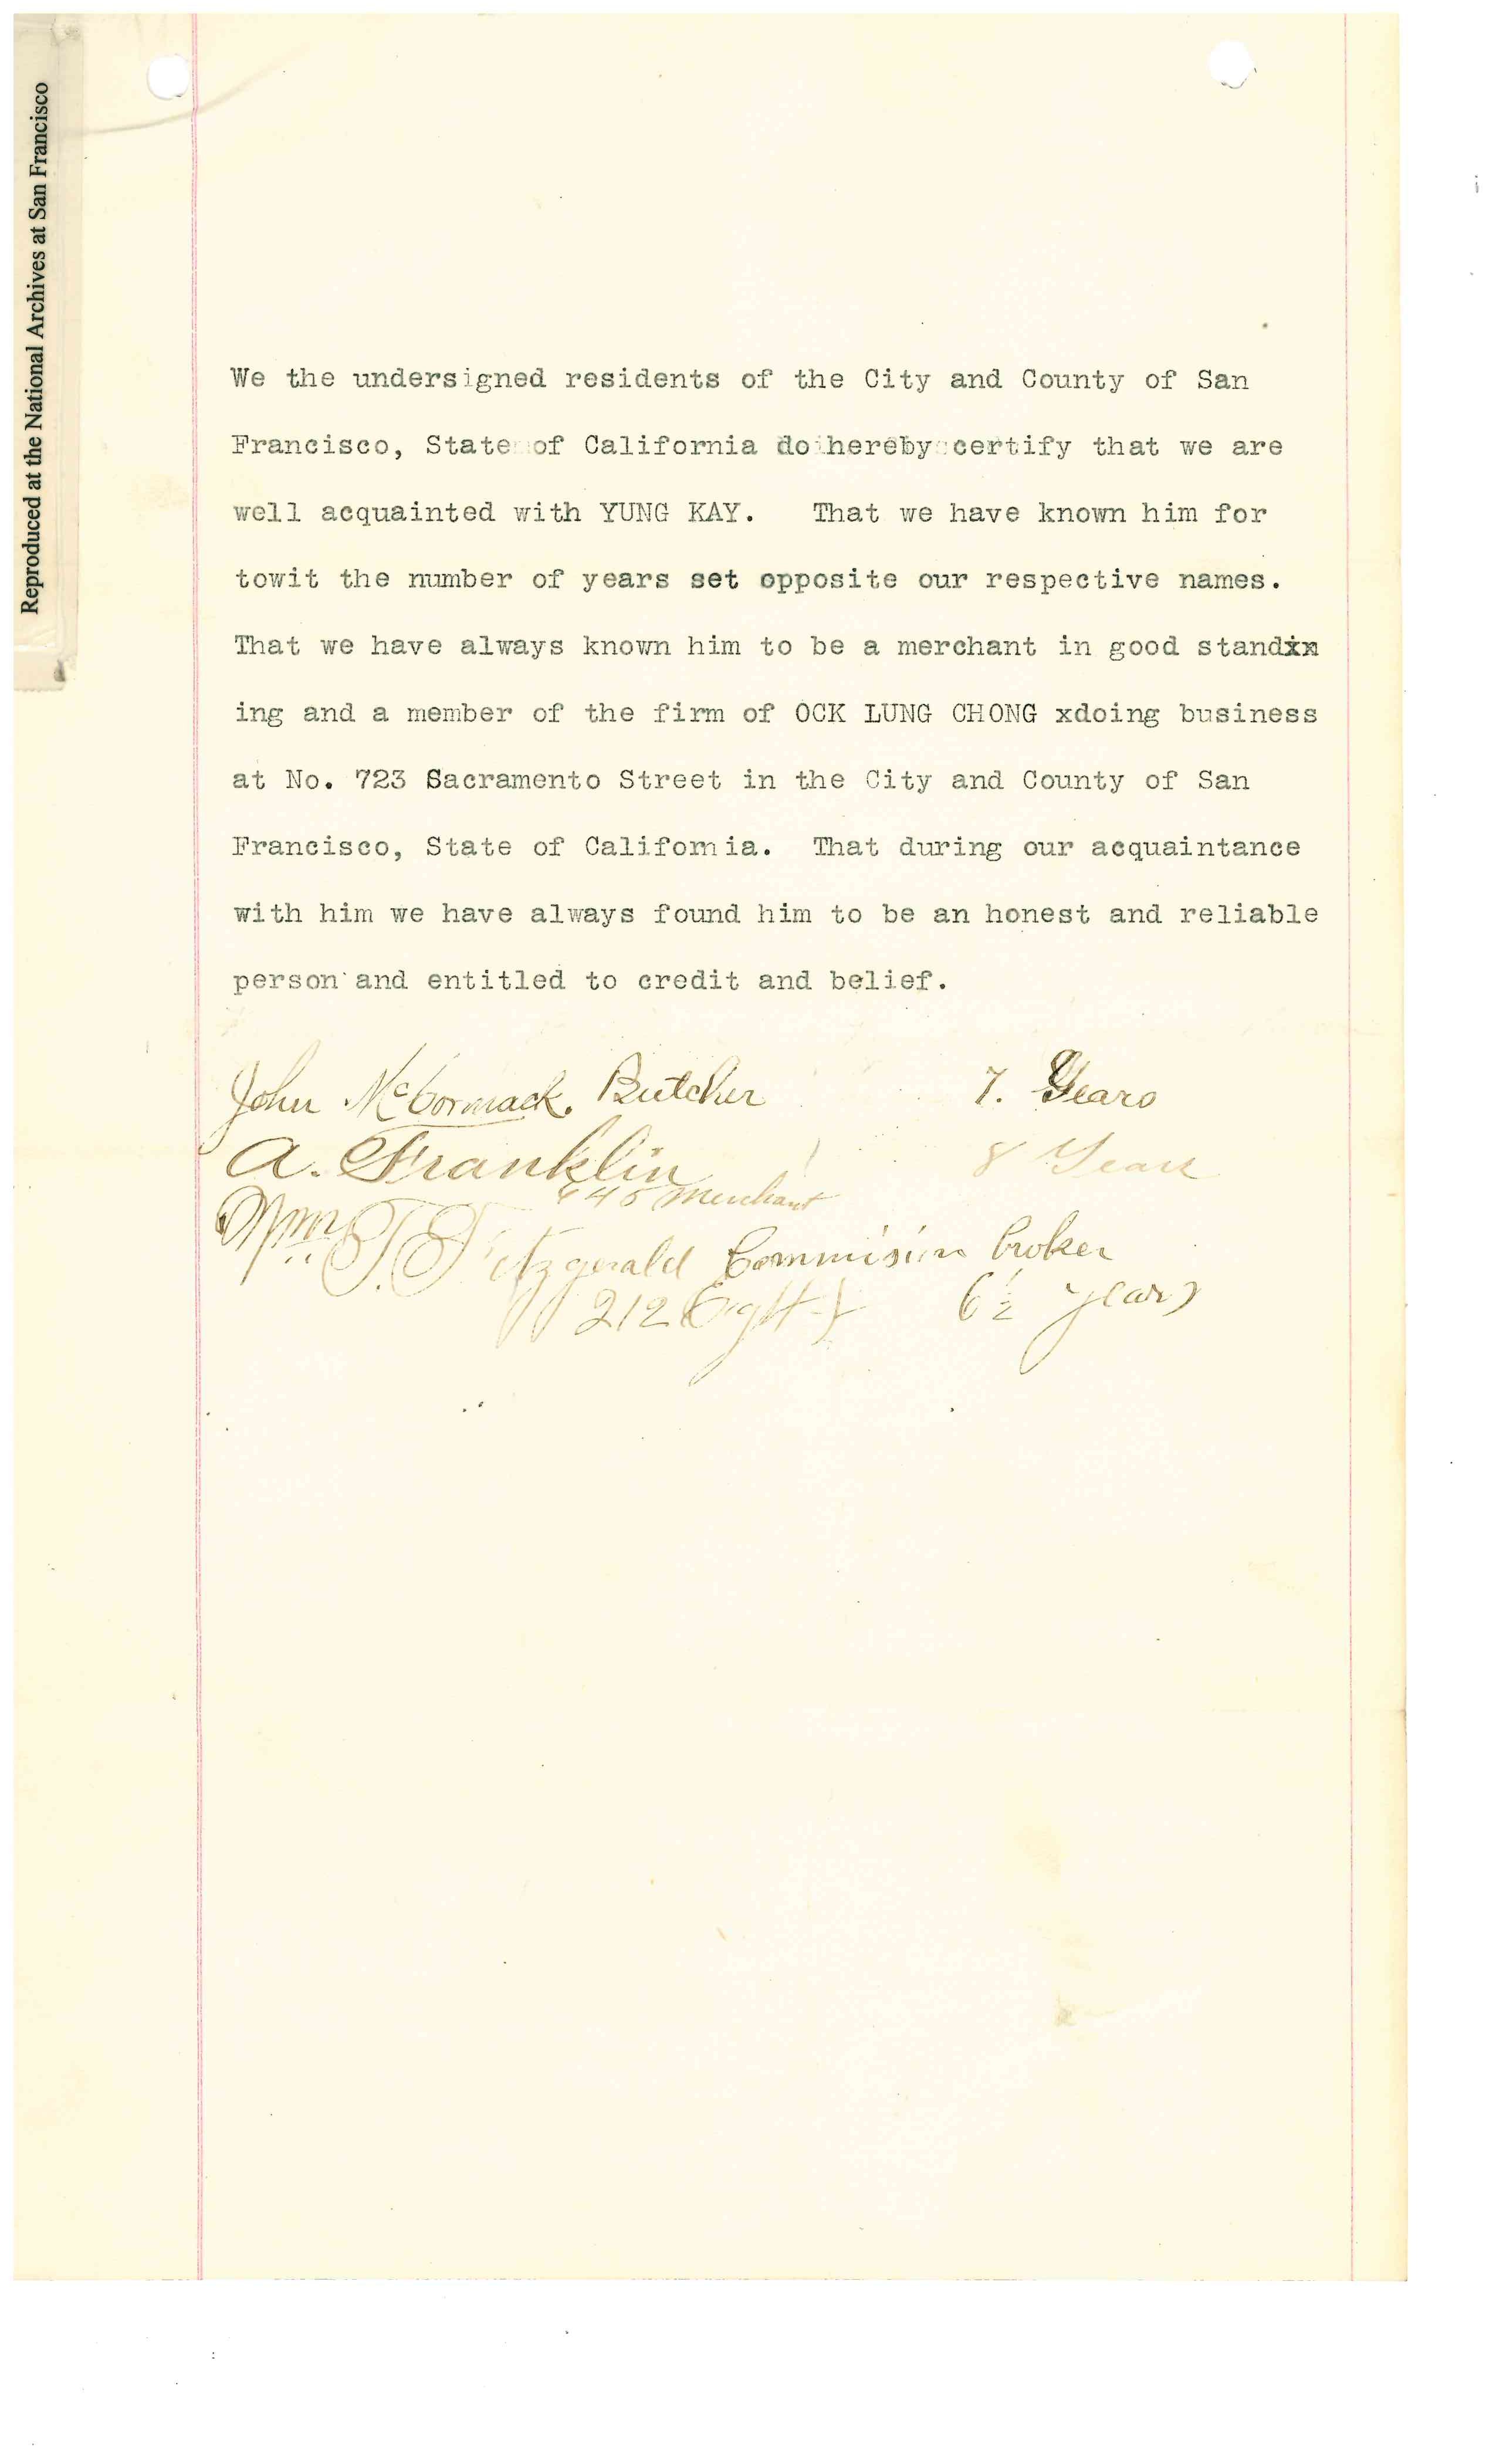 Reproduced at the National Archives at San Francisco
We the undersigned residents of the City and County of San
Francisco, State of California do hereby certify that we are
well acquainted with YUNG KAY. That we have known him for
towit the number of years set opposite our respective names.
That we have always known him to be a merchant in good standxx
ing and a member of the firm of OCK LUNG CHONG xdoing business
at No. 723 Sacramento Street in the City and County of San
Francisco, State of California. That during our acquaintance
with him we have always found him to be an honest and reliable
person and entitled to credit and belief.
John McCormack. Butcher 7. Years
A. Franklin 8 Years
Merchant
Wm T. Fitzgerald Commision broker
212 6½ years